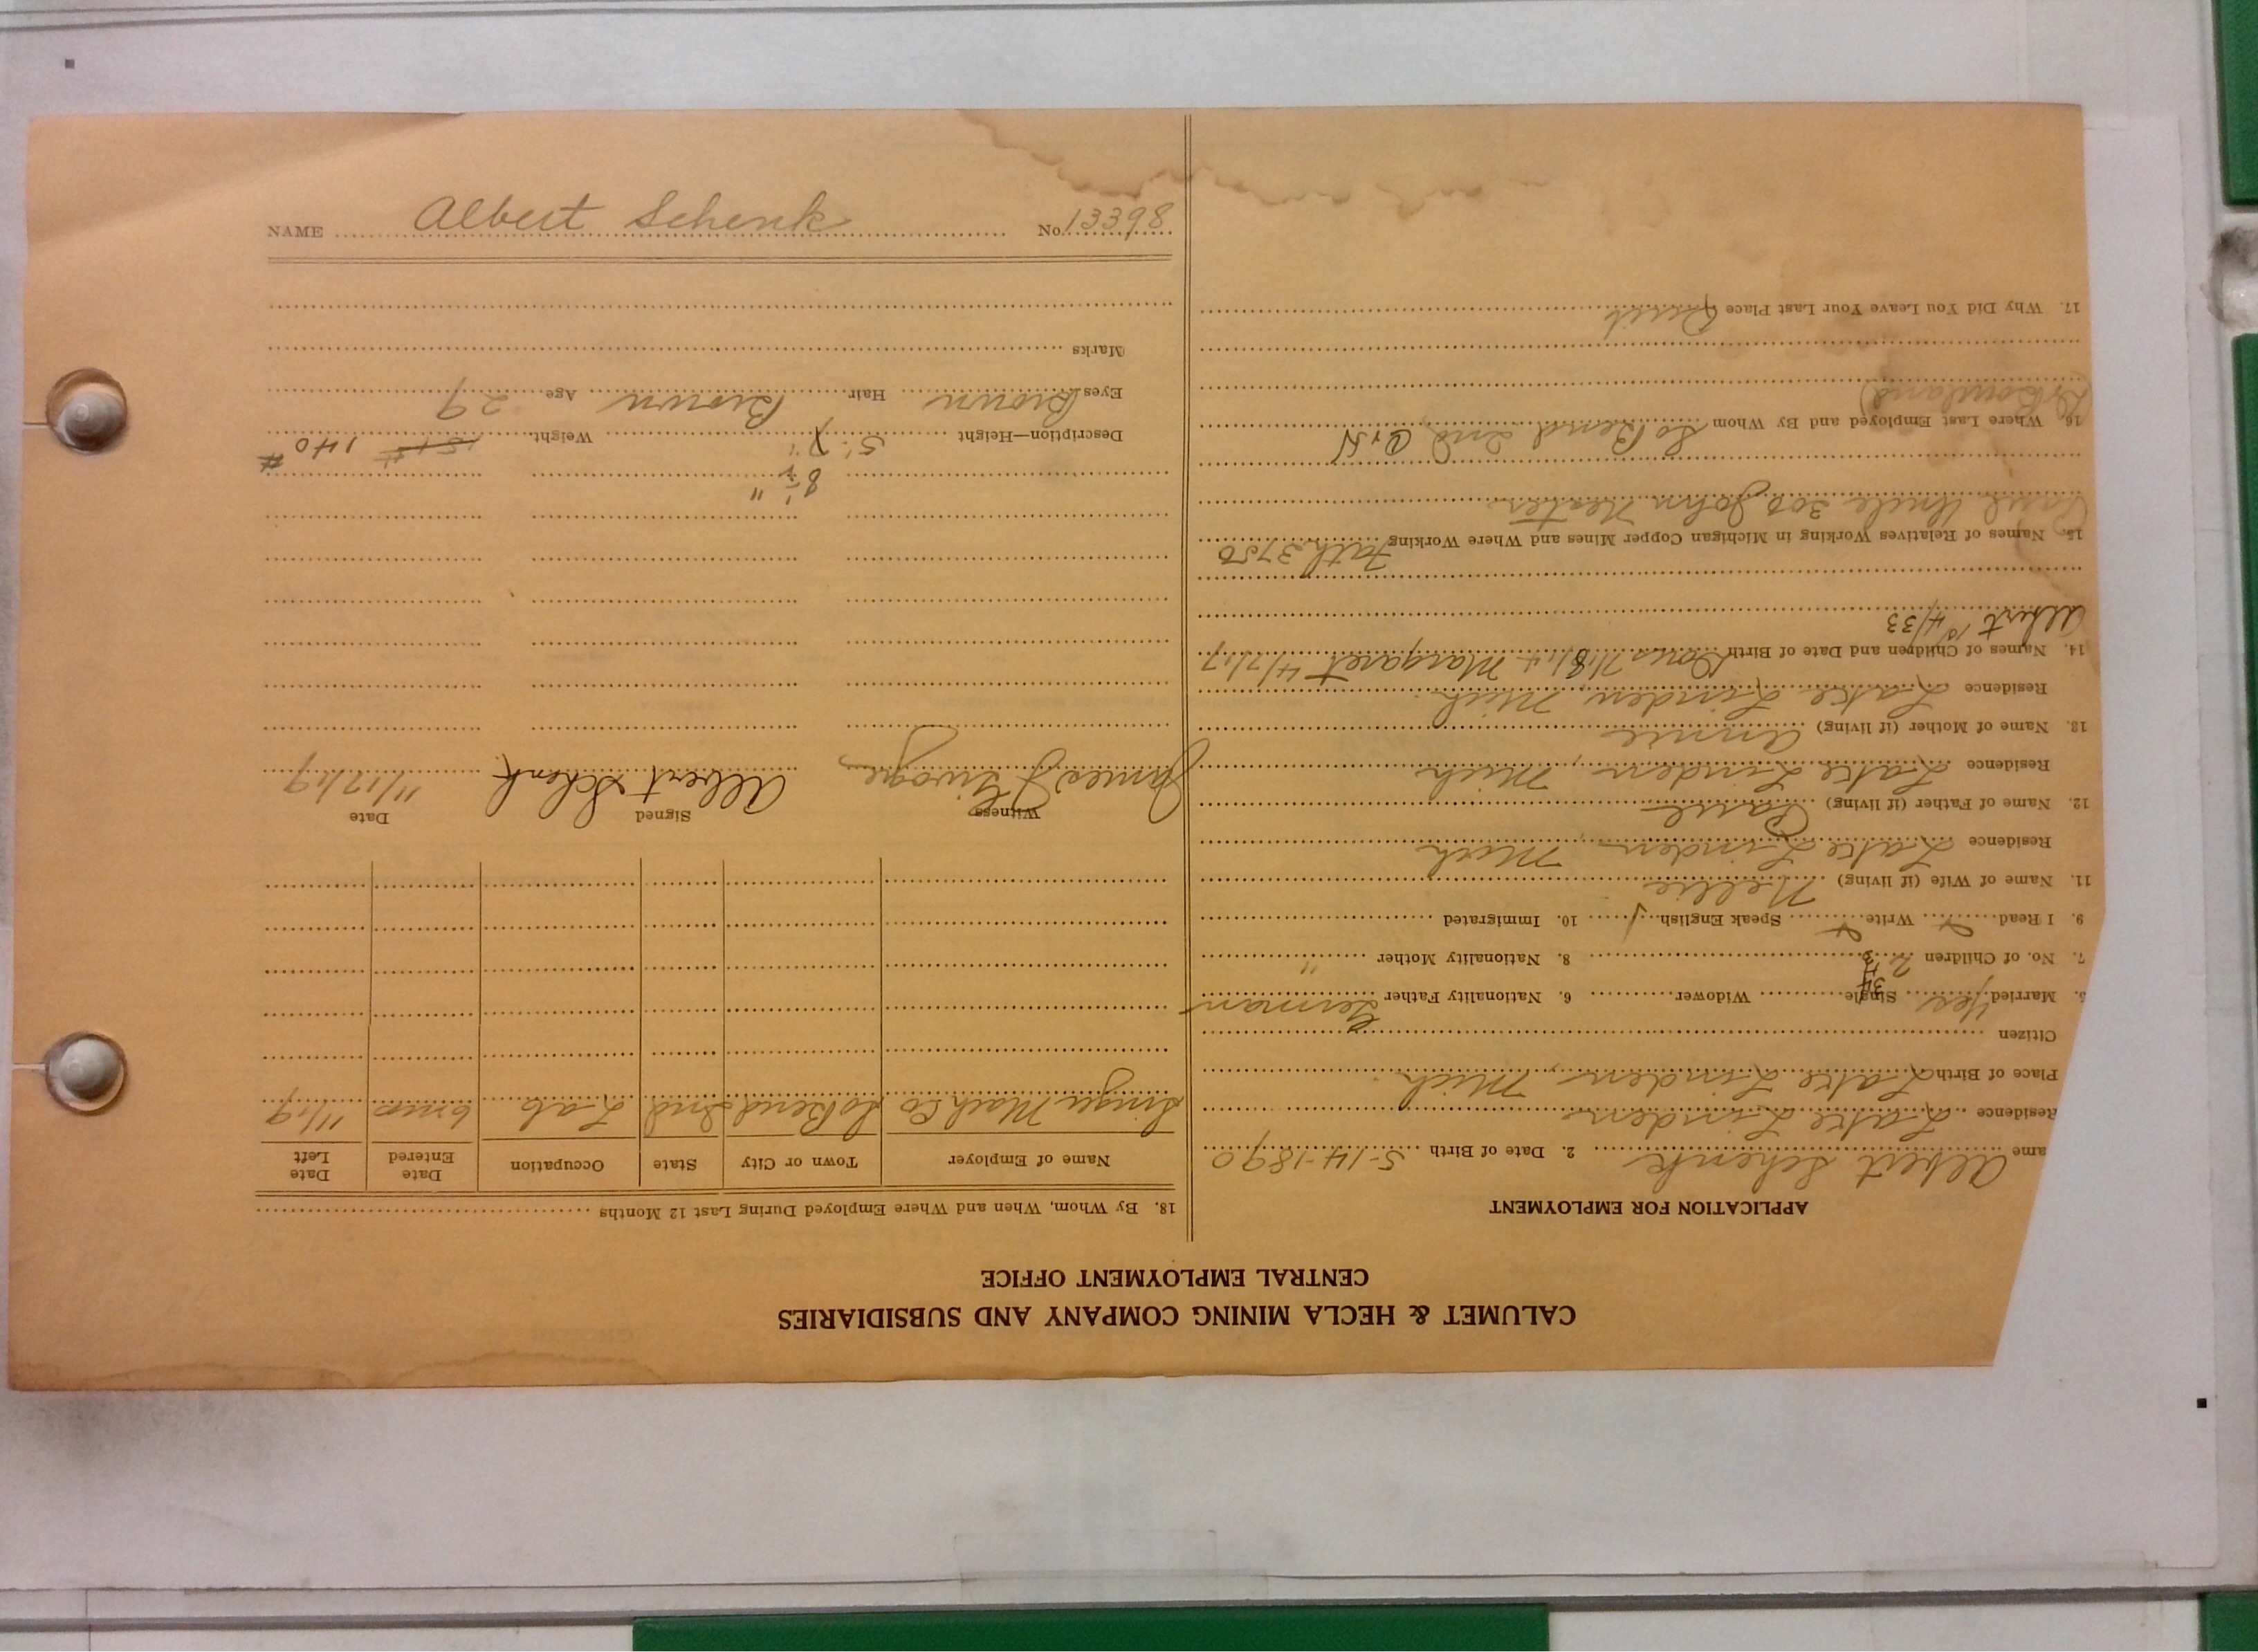 CALUMET & HECLA MINING COMPANY AND SUBSIDIARIES
CENTRAL EMPLOYMENT OFFICE
APPLICATION FOR EMPLOYMENT
ame Albert Schenk 2. Date of Birth 5-14-1890
Residence Lake Linden
Place of Birth Lake Linden, Mich.
Citizen
5. Married Yes Single Widower 6. Nationality Father German
7. No. of Children 2 3 4 8. Nationality Mother "
9. I Read Write Speak English 10. Immigrated
11. Name of Wife (if living) Nellie
Residence Lake Linden, Mich
12. Name of Father (if living) Paul
Residence Lake Linden, Mich
13. Name of Mother (if living) Annie
Residence Lake Linden, Mich.
14. Names of Children and Date of Birth Doris 7/18/14 Margaret 4/7/17
Albert 4/33
15. Names of Relatives Working in Michigan Copper Mines and Where Working Fath 3750
Paul Uncle 300 John Hester
16. Where Last Employed and By Whom So Bend Ind
17. Why Did You Leave Your Last Place Quit
18. By Whom, When and Where Employed During Last 12 Months
Name of Employer Town or City State Occupation Date Entered Date Left
Singer Mach Co So Bend Ind Lab 6 mos 11/19
Witness Signed Date
James Albert Schenk 11/17/19
8 1/2 "
Description—Height 5' 7" Weight 151 # 140 #
Eyes Brown Hair Brown Age 29
Marks
NAME Albert Schenk No. 13398